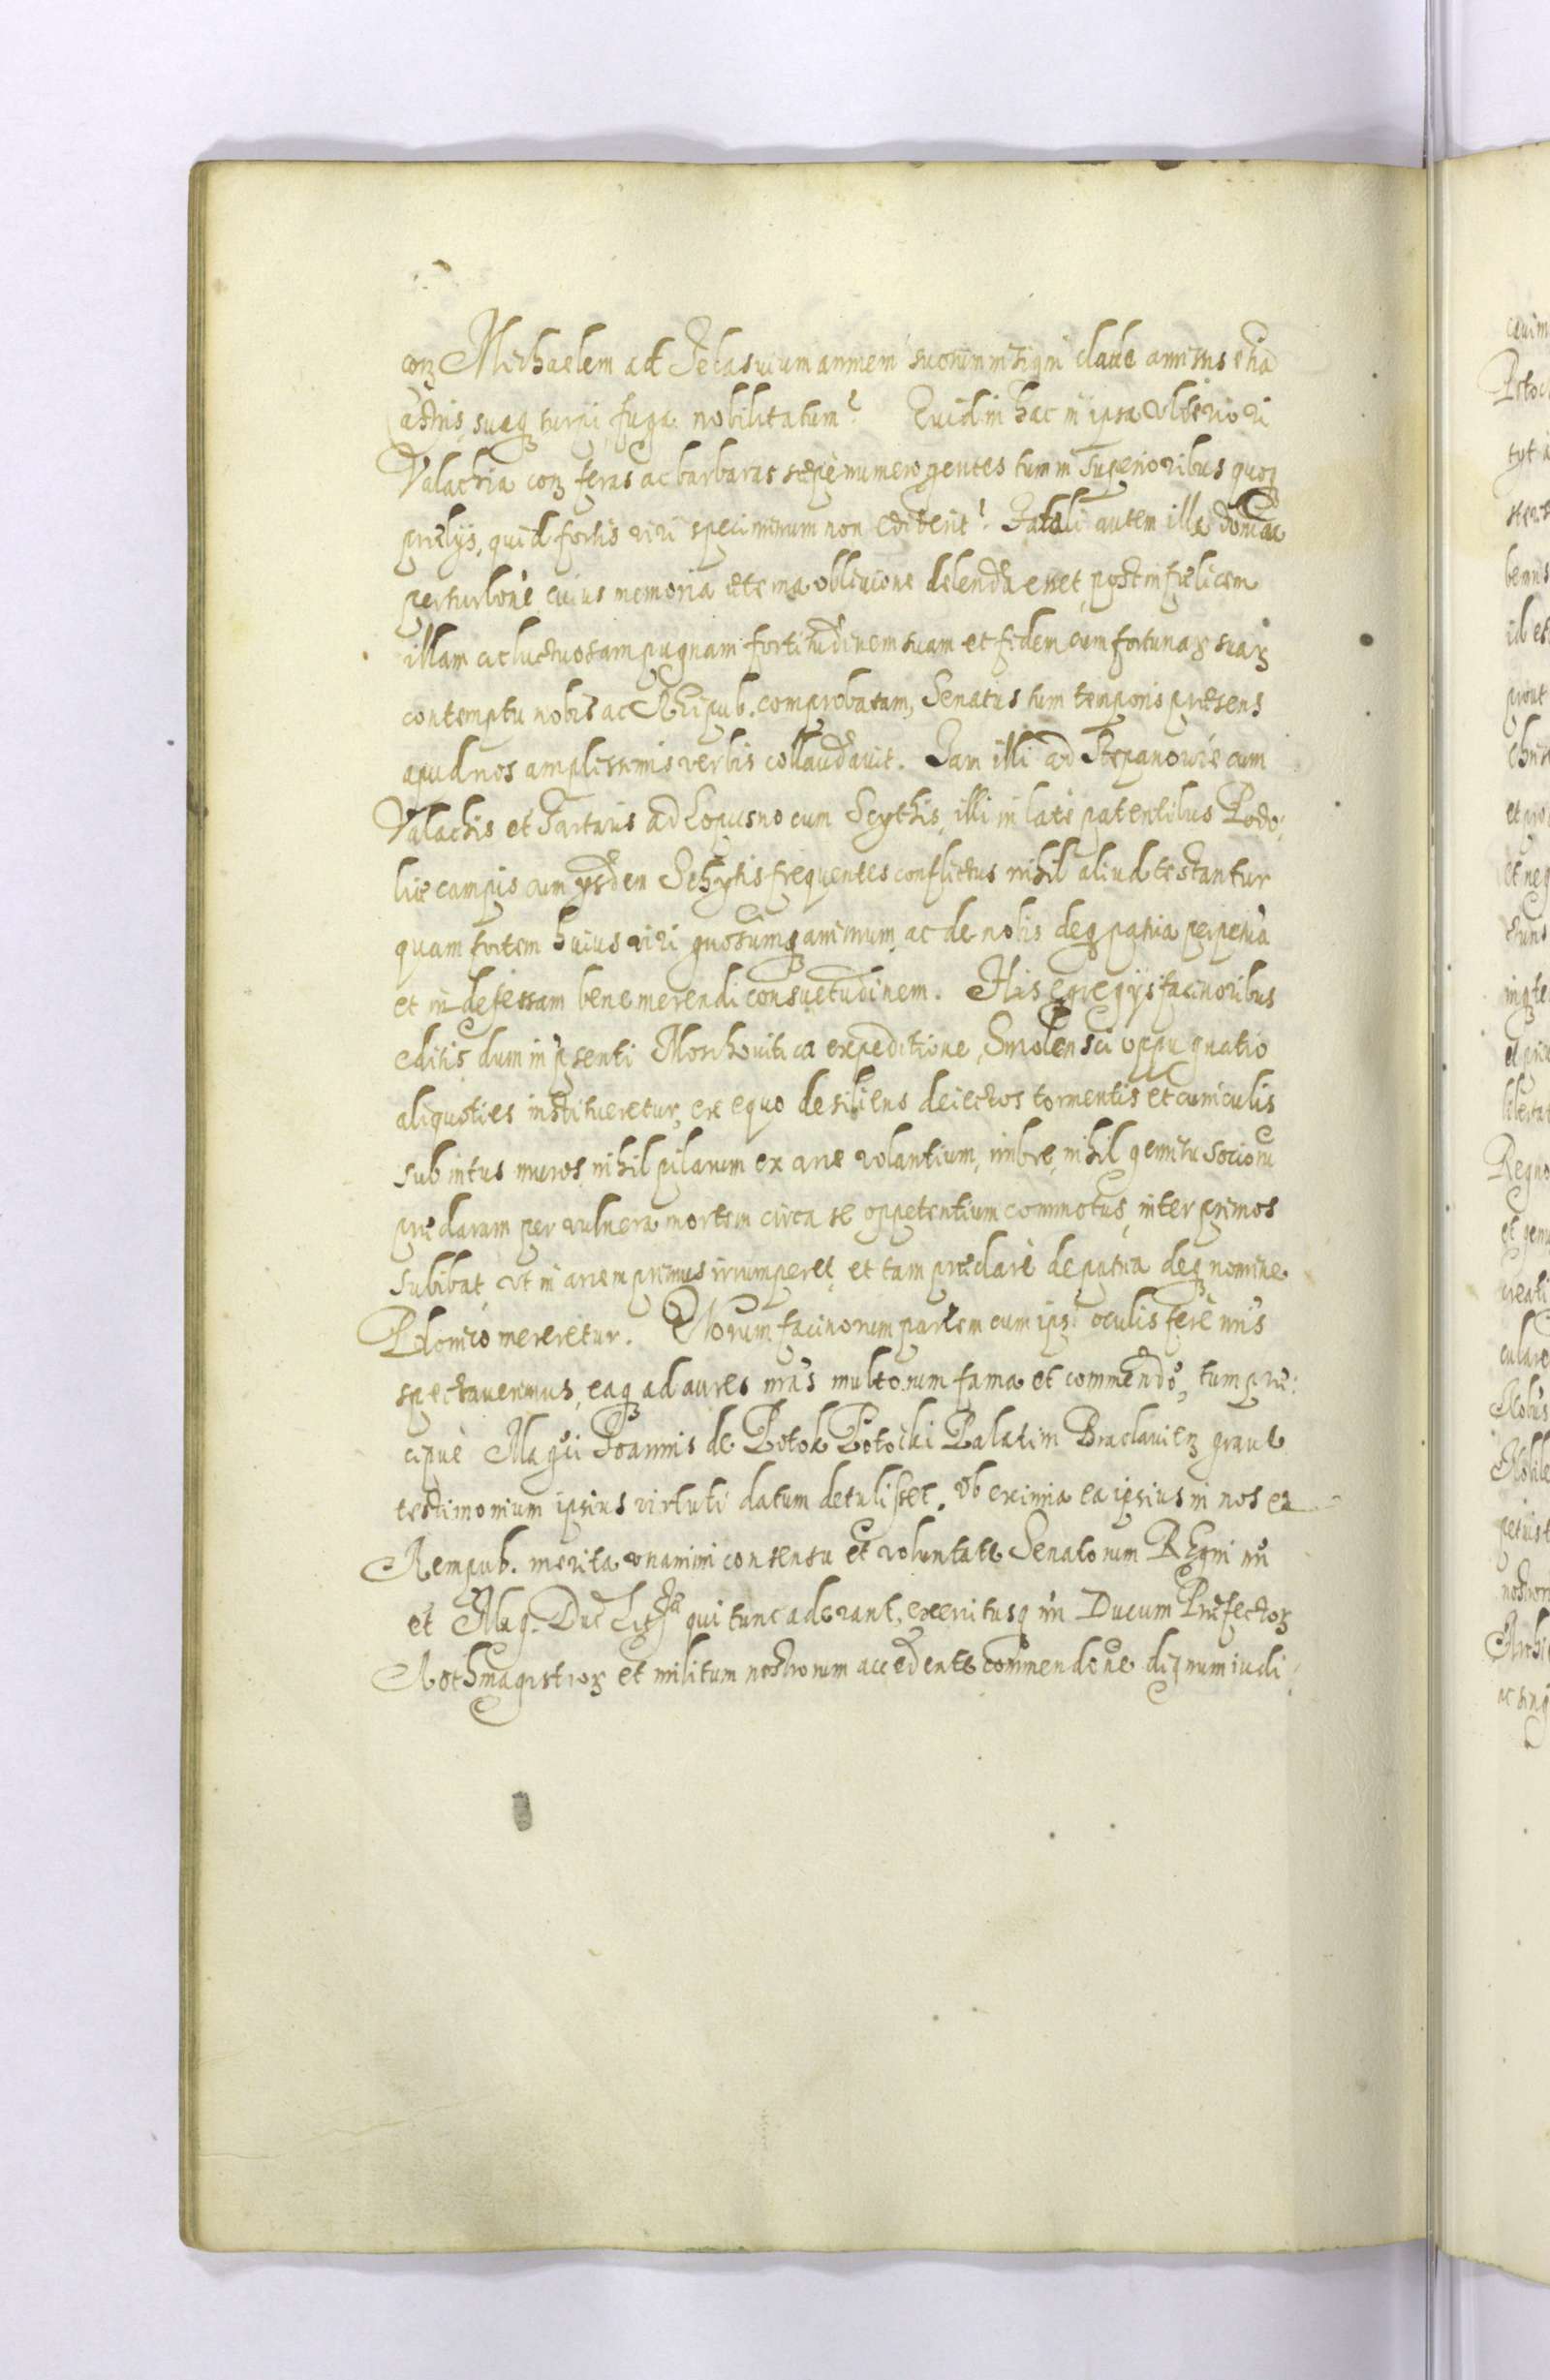 Michaelem ad Telasuium amnem suorum insigni clade amissis etia
castris, suaq turpi fuga nobilitatum? Quid in hac in ipsa Ulteriori
Valachia con feras ac barbaras sæpè numero gentes tum in Superioribus quoq
prælys, quid fortis viri speciminum non ediderit? Fatali autem illa
perturbone cuius memoria æterna obliuione delenda esset, post infælicem
illam ac luctuosam pugnam fortitudinem suam et fidem cum fortunaꝝ suaꝝ
contemptu nobis ac Reipub. comprobatam, Senatus tum temporis præsens
apud nos amplissimis verbis collaudauit. Iam illi ad Stepanowce cum
Valachis et Tartaris ad Lopusno cum Scythis, illi in latè patentibus Podo:
liæ campis cum ysdem Schytis frequentes conflictus nihil aliud testantur
quam fortem huius viri animum, ac de nobis deq patria perpetua
et indefessam bene merendi consuetudinem. His egregys facinoribus
editis, dum in psenti Moschouitica expeditione, Smolensci oppugnatio
aliquoties institueretur, ex equo desiliens deiectos tormentis et cuniculis
subintus muros, nihil pilarum ex arce volantium, imbre, nihil gemitu socioru
præclaram per vulnera mortem circa se oppetentium commotus, inter primos
subibat, vt in arcem primus irrumperet, et tam præclarè de patria deq nomine
Polonico mereretur. Quorum facinorum partem cum ipsi oculis ferè nris
spectauerimus, eaq ad aures nras multorum fama et commendo, tum præ:
cipuè Magci Ioannis de Potok Potocki Palatini Braclauien graue
testimonium ipsius virtuti datum detulisset. Ob eximia ea ipsius in nos et
Rempub. merita vnanimi consensu et voluntate Senatorum Regni nri
et Mag. Duc. Lit. qui tunc aderant, exercitusq nri Ducum Præfectoꝝ
Rothmagistroꝝ et militum nostrorum accedente commendone dignum iudi: